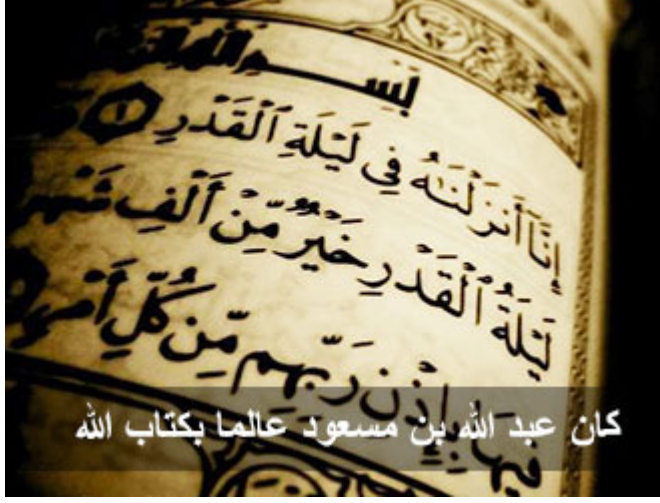 بِسْمِ
إِنَّا أَنزَلْنَٰهُ فِي لَيْلَةِ ٱلْقَدْرِ ١
لَيْلَةُ ٱلْقَدْرِ خَيْرٌ مِّنْ أَلْفِ شَهْرٍ
فِيهَا بِإِذْنِ رَبِّهِم مِّن كُلِّ أَمْرٍ
كان عبد الله بن مسعود عالما بكتاب الله